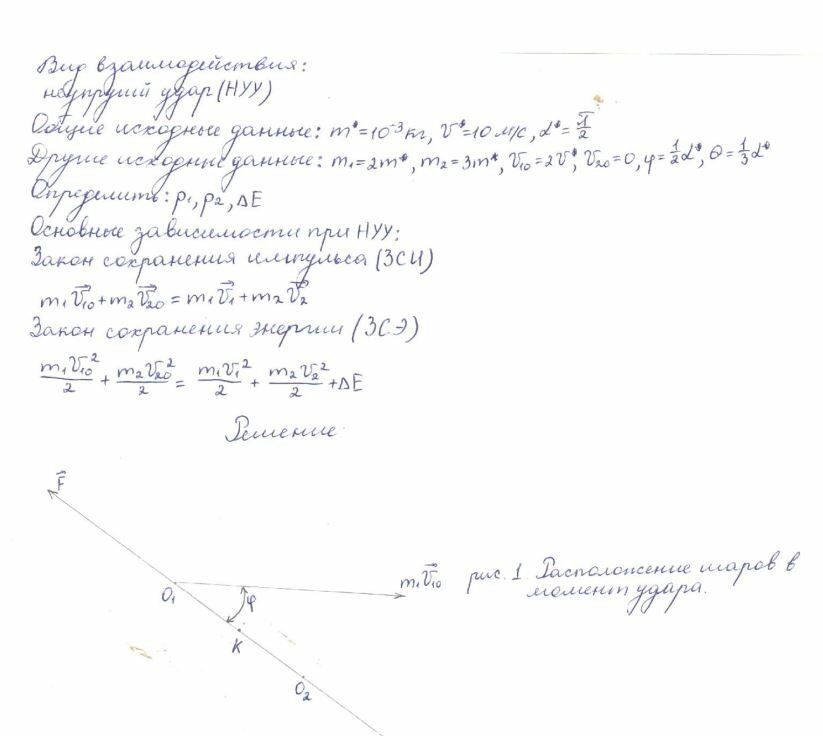 Вид взаимодействия:
неупругий удар (НУУ)
Общие исходные данные: m*=10⁻³кг, V*=10 м/с, α*=π/2
Другие исходные данные: m₁=2m*, m₂=3m*, V₁₀=2V*, V₂₀=0, φ=1/2α*, θ=1/3α*
Определить: p₁, p₂, ΔE
Основные зависимости при НУУ:
Закон сохранения импульса (ЗСИ)
m₁V⃗₁₀+m₂V⃗₂₀=m₁V⃗₁+m₂V⃗₂
Закон сохранения энергии (ЗСЭ)
m₁V₁₀²/2 + m₂V₂₀²/2 = m₁V₁²/2 + m₂V₂²/2 + ΔE
Решение
F⃗
O₁
φ
m₁V⃗₁₀
K
O₂
рис. 1. Расположение шаров в
момент удара.